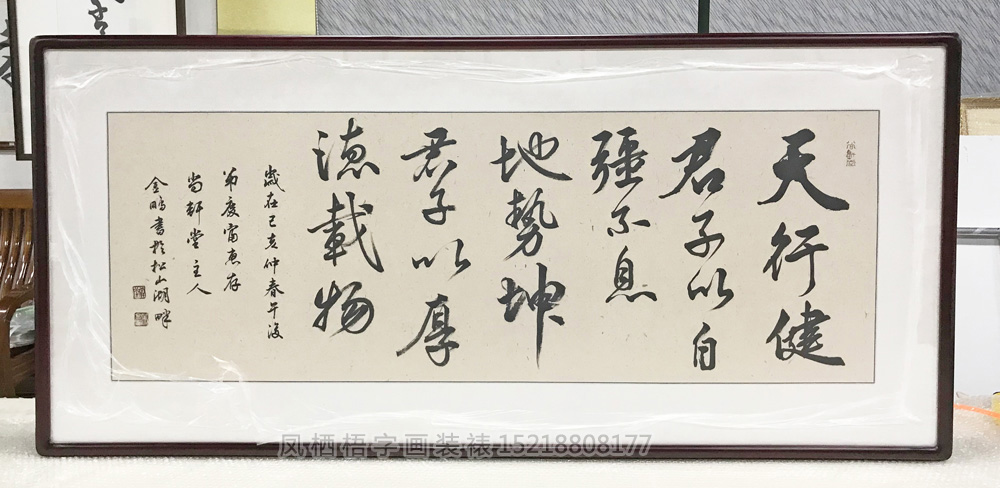 天行健
君子以自
彊不息
地勢坤
君子以厚
德載物
歲在己亥仲春午後
甯惠存
尚軒堂主人
金鵬書於松山湖畔
凤栖梧字画装裱15218808177